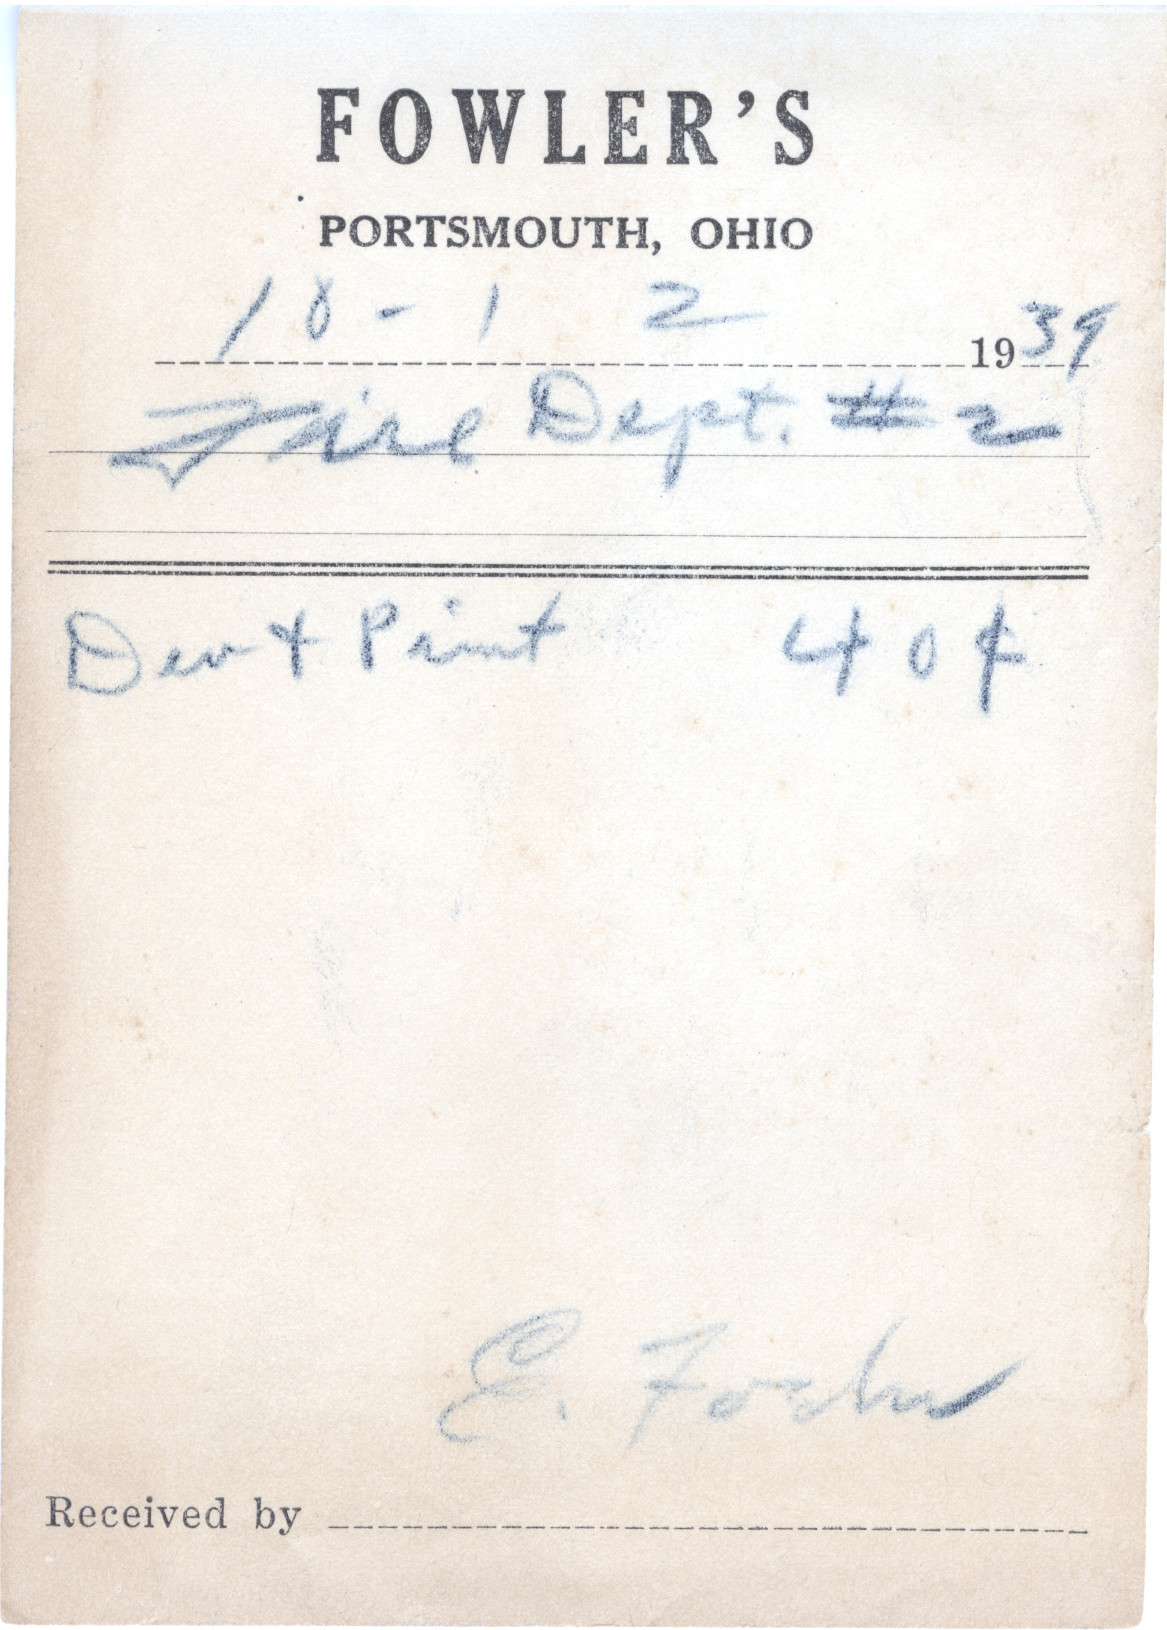 FOWLER'S
PORTSMOUTH, OHIO
10-12 1939
Fire Dept. #2
Dev & Print 40¢
E.
Received by